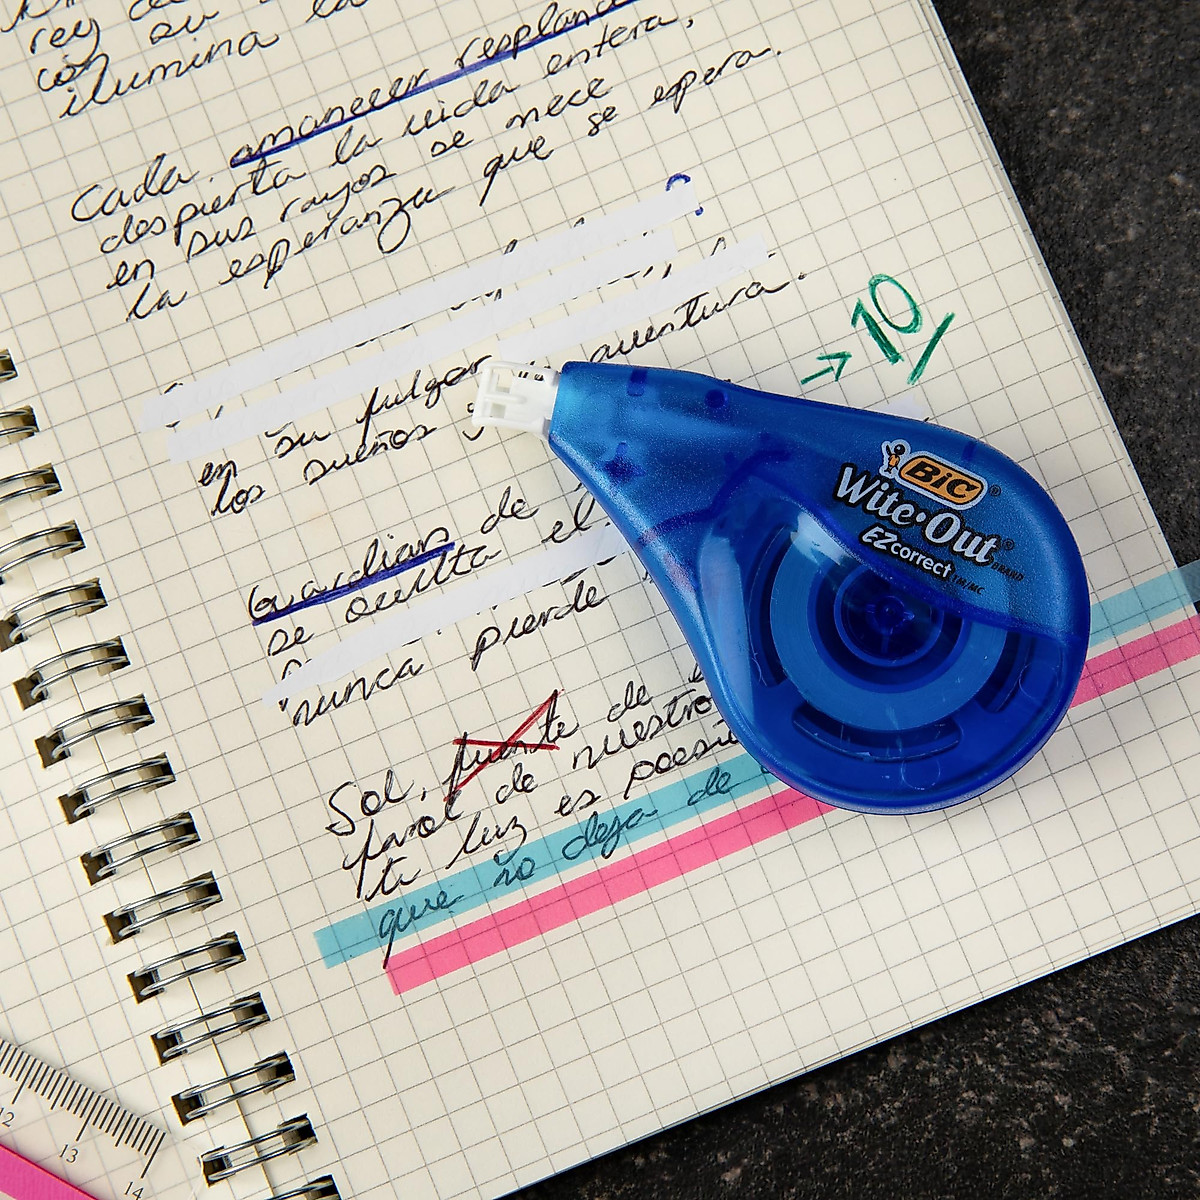 rey de
con su la
ilumina
Cada amanecer resplande
despierta la vida entera,
en sus rayos se mece
la esperanza que se espera.
en su fulgor aventura.
los sueños y
→ 10
Guardian de
se oculta el
nunca pierde
Sol, puente de
farol de nuestro
tu luz es poesi
que no deja de
BIC®
Wite·Out®
BRAND
EZcorrect TM/MC
12
13
14